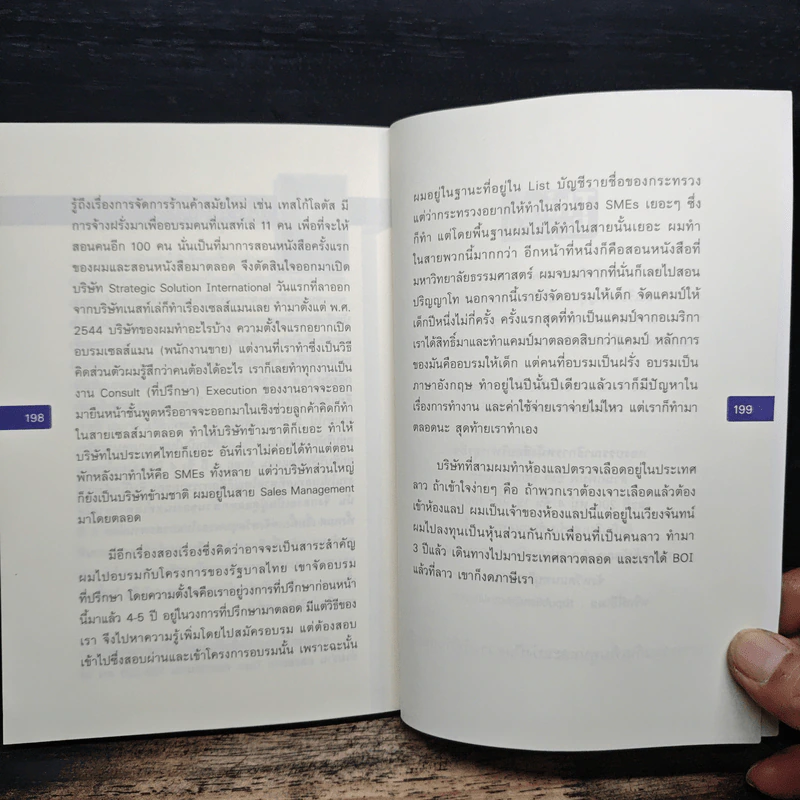 รู้ถึงเรื่องการจัดการร้านค้าสมัยใหม่ เช่น เทสโก้โลตัส มี
การจ้างฝรั่งมาเพื่ออบรมคนที่เนสท์เล่ 11 คน เพื่อที่จะให้
สอนคนอีก 100 คน นั่นเป็นที่มาการสอนหนังสือครั้งแรก
ของผมและสอนหนังสือมาตลอด จึงตัดสินใจออกมาเปิด
บริษัท Strategic Solution International วันแรกที่ลาออก
จากบริษัทเนสท์เล่ก็ทำเรื่องเซลส์แมนเลย ทำมาตั้งแต่ พ.ศ.
2544 บริษัทของผมทำอะไรบ้าง ความตั้งใจแรกอยากเปิด
อบรมเซลส์แมน (พนักงานขาย) แต่งานที่เราทำซึ่งเป็นวิธี
คิดส่วนตัวผมรู้สึกว่าคนต้องได้อะไร เราก็เลยทำทุกงานเป็น
งาน Consult (ที่ปรึกษา) Execution ของงานอาจจะออก
มายืนหน้าชั้นพูดหรืออาจจะออกมาในเชิงช่วยลูกค้าคิดก็ทำ
ในสายเซลส์มาตลอด ทำให้บริษัทข้ามชาติก็เยอะ ทำให้
บริษัทในประเทศไทยก็เยอะ อันที่เราไม่ค่อยได้ทำแต่ตอน
พักหลังมาทำให้คือ SMEs ทั้งหลาย แต่ว่าบริษัทส่วนใหญ่
ก็ยังเป็นบริษัทข้ามชาติ ผมอยู่ในสาย Sales Management
มาโดยตลอด
มีอีกเรื่องสองเรื่องซึ่งคิดว่าอาจจะเป็นสาระสำคัญ
ผมไปอบรมกับโครงการของรัฐบาลไทย เขาจัดอบรม
ที่ปรึกษา โดยความตั้งใจคือเราอยู่วงการที่ปรึกษาก่อนหน้า
นี้มาแล้ว 4-5 ปี อยู่ในวงการที่ปรึกษามาตลอด มีแต่วิธีของ
เรา จึงไปหาความรู้เพิ่มโดยไปสมัครอบรม แต่ต้องสอบ
เข้าไปซึ่งสอบผ่านและเข้าโครงการอบรมนั้น เพราะฉะนั้น
198
ผมอยู่ในฐานะที่อยู่ใน List บัญชีรายชื่อของกระทรวง
แต่ว่ากระทรวงอยากให้ทำในส่วนของ SMEs เยอะๆ ซึ่ง
ก็ทำ แต่โดยพื้นฐานผมไม่ได้ทำในสายนั้นเยอะ ผมทำ
ในสายพวกนี้มากกว่า อีกหน้าที่หนึ่งก็คือสอนหนังสือที่
มหาวิทยาลัยธรรมศาสตร์ ผมจบมาจากที่นั่นก็เลยไปสอน
ปริญญาโท นอกจากนี้เรายังจัดอบรมให้เด็ก จัดแคมป์ให้
เด็กปีหนึ่งไม่กี่ครั้ง ครั้งแรกสุดที่ทำเป็นแคมป์จากอเมริกา
เราได้สิทธิ์มาและทำแคมป์มาตลอดสิบกว่าแคมป์ หลักการ
ของมันคืออบรมให้เด็ก แต่คนที่อบรมเป็นฝรั่ง อบรมเป็น
ภาษาอังกฤษ ทำอยู่ในปีนั้นปีเดียวแล้วเราก็มีปัญหาใน
เรื่องการทำงาน และค่าใช้จ่ายเราจ่ายไม่ไหว แต่เราก็ทำมา
ตลอดนะ สุดท้ายเราทำเอง
บริษัทที่สามผมทำห้องแลปตรวจเลือดอยู่ในประเทศ
ลาว ถ้าเข้าใจง่ายๆ คือ ถ้าพวกเราต้องเจาะเลือดแล้วต้อง
เข้าห้องแลป ผมเป็นเจ้าของห้องแลปนี้แต่อยู่ในเวียงจันทน์
ผมไปลงทุนเป็นหุ้นส่วนกันกับเพื่อนที่เป็นคนลาว ทำมา
3 ปีแล้ว เดินทางไปมาประเทศลาวตลอด และเราได้ BOI
แล้วที่ลาว เขาก็งดภาษีเรา
199